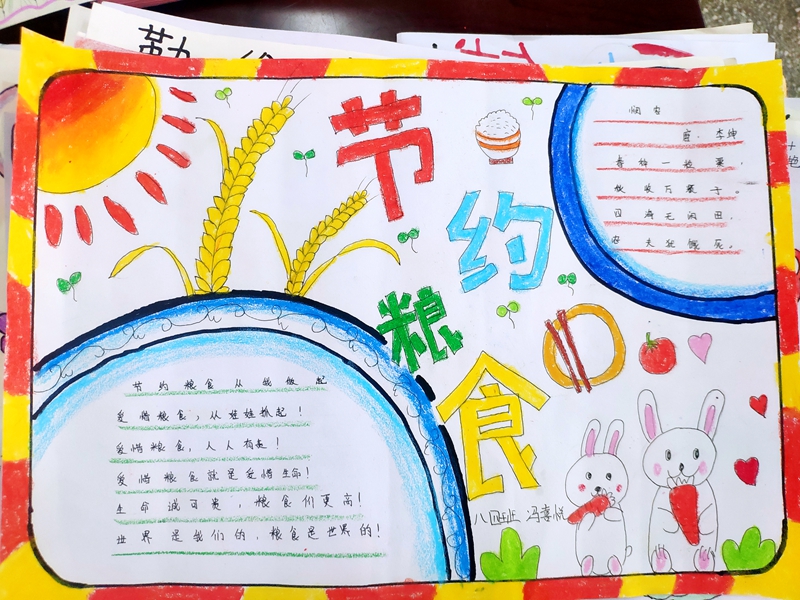 勤
节
约
粮
食
悯农
唐 李绅
春种一粒粟,
秋收万颗子。
四海无闲田,
农夫犹饿死。
节约粮食从我做起
爱惜粮食,从娃娃抓起!
爱惜粮食,人人有责!
爱惜粮食就是爱惜生命!
生命诚可贵,粮食价更高!
世界是我们的,粮食是世界的!
八四班 冯